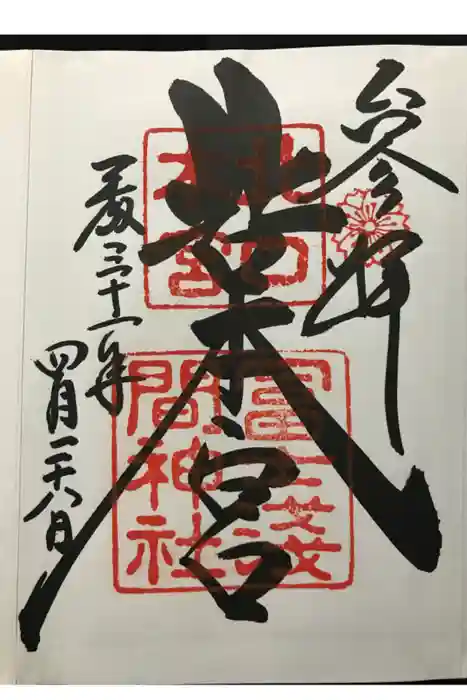 参拝
北口本宮
北口
本宮
冨士淺
間神社
平成三十一年
四月二十八日